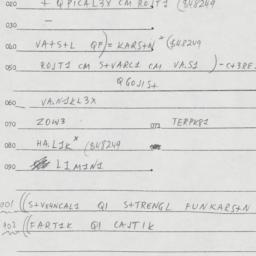 020 + QPICAL3Y CM ROJT1 (§48249
030 —
040 VA+S+L QF)= KARS+N * (§48249
050 ROJT1 CM S+VARC1 CM VA.S1 )-C+3RE.
QGOJIS+
060 VA.N1KL3X
070 ZOW3 073 TERPKP1
080 HA.L1K x (§48249
090 L1M1N1
001 ((S+VX4NCAL1 Q1 S+TRENGL FUNKARS+N
002 ((FART1K Q1 CAJT1K